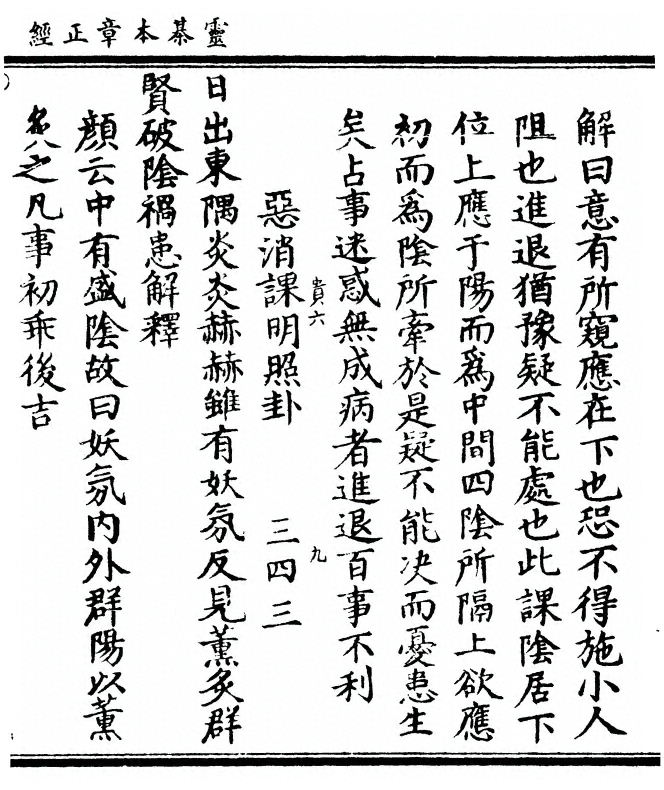 靈棊本章正經
解曰意有所窺應在下也恐不得施小人
阻也進退猶豫疑不能處也此課陰居下
位上應于陽而為中間四陰所隔上欲應
初而為陰所牽於是疑不能决而憂患生
矣占事迷惑無成病者進退百事不利
貴六 九
惡消課明照卦 三四三
日出東隅炎炎赫赫雖有妖氛反見薰炙群
賢破陰禍患解釋
顏云中有盛陰故曰妖氛内外群陽以薰
炙之凡事初乖後吉